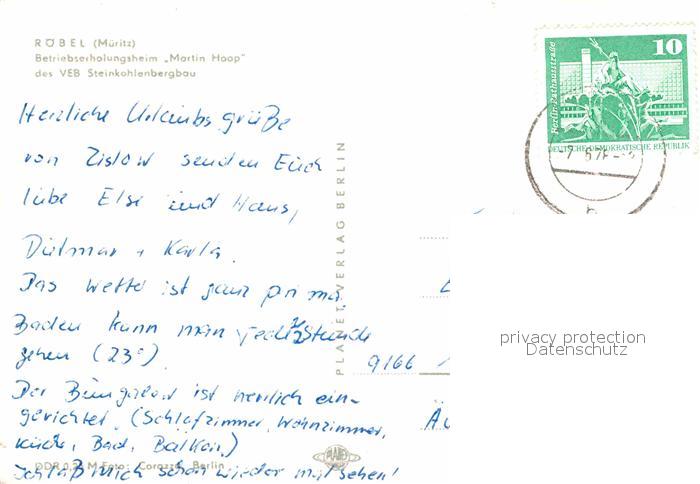 RÖBEL (Müritz)
Betriebserholungsheim „Martin Hoop"
des VEB Steinkohlenbergbau
Herzliche Urlaubsgrüße
von Zislow senden Euch
liebe Elsi und Hans,
Dietmar + Karla.
Das Wetter ist ganz prima.
Baden kann man jede 1/2 Stunde
gehen (23°).
Der Bungalow ist herrlich ein-
gerichtet. (Schlafzimmer, Wohnzimmer,
Küche, Bad, Balkon,)
schon wieder mal sehen!
DDR M Foto: Corazza, Berlin
PLANET-VERLAG BERLIN
PLANET
10
Berlin-Rathausstraße
DEUTSCHE DEMOKRATISCHE REPUBLIK
9166
privacy protection
Datenschutz